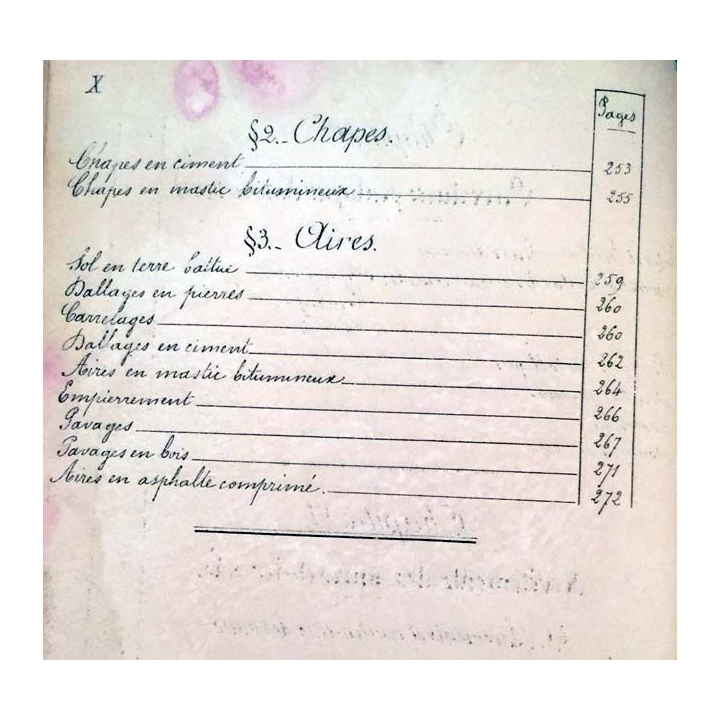 X
Pages
§2.- Chapes.
Chapes en ciment 253
Chapes en mastic bitumineux 255
§3.- Aires.
Sol en terre battue 259
Dallages en pierres 260
Carrelages 260
Dallages en ciment 262
Aires en mastic bitumineux 264
Empierrement 266
Pavages 267
Pavages en bois 271
Aires en asphalte comprimé. 272